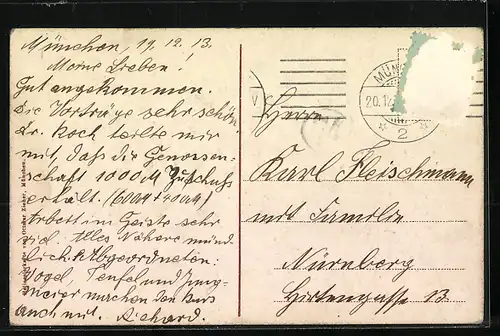 München, 19.12.13.
Meine Lieben!
Gut angekommen.
Die Vorträge sehr schön.
Dr. Koch teilte mir
mit, daß die Genossen-
schaft 1000 M Zuschuß
erhält. (600M + 400M)
Arbeit im Geiste sehr
viel. Alles Nähere münd-
lich. Abgeordneten:
Vogel, Teufel und Jung-
meier machen den Kurs
auch mit. Richard.
MÜN
20.12
2
Herrn
Karl Fleischmann
mit Familie
Nürnberg
Hirtengasse 13.